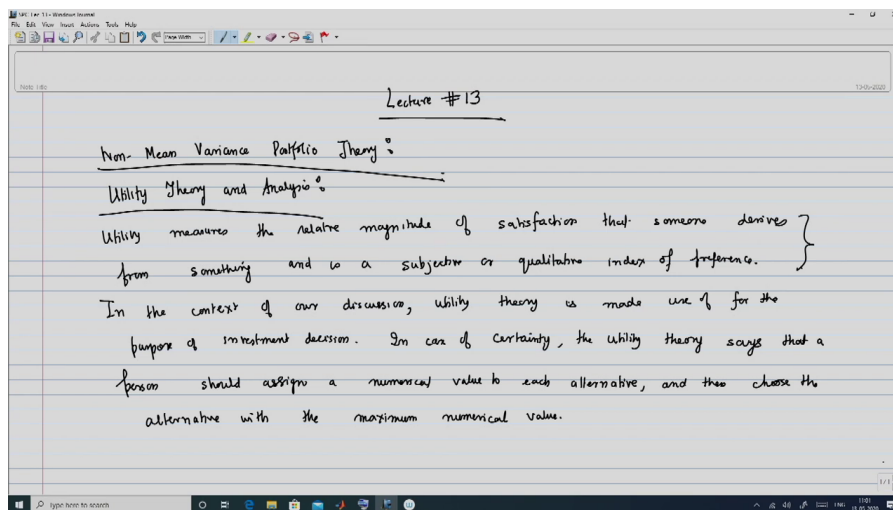 SPC Lec 13 - Windows Journal
File Edit View Insert Actions Tools Help
Page Width
Note Title
13-05-2020
Lecture #13
Non- Mean Variance Portfolio Theory:
Utility Theory and Analysis:
Utility measures the relative magnitude of satisfaction that someone derives
from something and is a subjective or qualitative index of preference.
In the context of our discussion, utility theory is made use of for the
purpose of investment decision. In case of certainty, the utility theory says that a
person should assign a numerical value to each alternative, and then choose the
alternative with the maximum numerical value.
1/1
Type here to search
ENG
11:01
13-05-2020